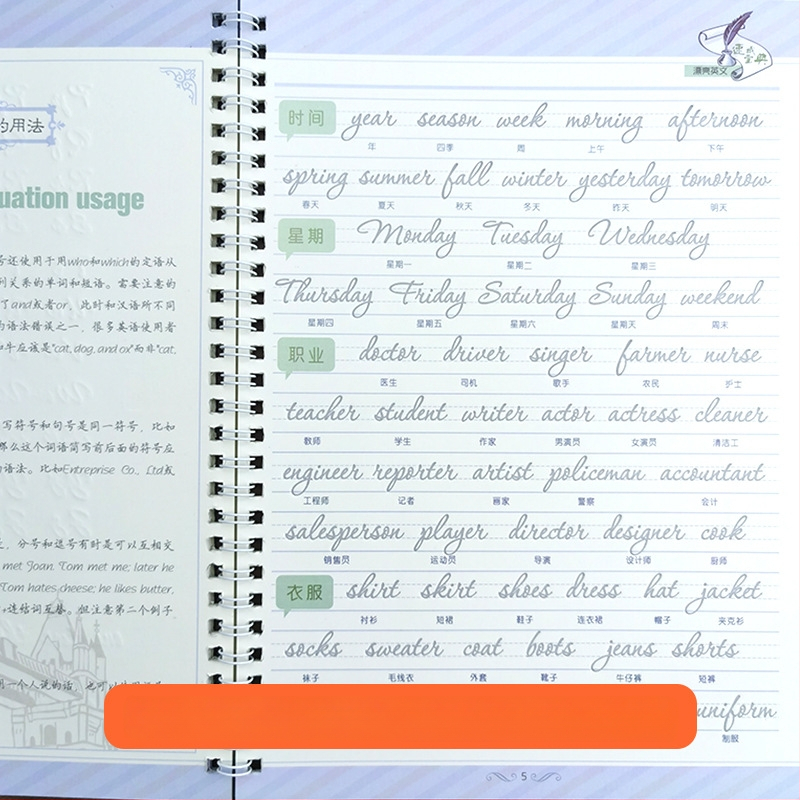 的用法
uation usage
号还使用于用who和which的定语从
列关系的单词和短语。需要注意的
了and或者or，此时和汉语所不同
的语法错误之一，很多英语使用者
和牛应该是"cat, dog, and ox"而非"cat,
写符号和句号是同一符号，比如
那么这个词语简写前后面的符号应
语法。比如Entreprise Co., Ltd或
，分号和逗号有时是可以互相交
met Joan. Tom met me; later he
Tom hates cheese; he likes butter,
+连结词互替。但注意第二个例子
用一个人说的话，也可以
漂亮英文
速成宝典
时间 year season week morning afternoon
年 四季 周 上午 下午
spring summer fall winter yesterday tomorrow
春天 夏天 秋天 冬天 昨天 明天
星期 Monday Tuesday Wednesday
星期一 星期二 星期三
Thursday Friday Saturday Sunday weekend
星期四 星期五 星期六 星期天 周末
职业 doctor driver singer farmer nurse
医生 司机 歌手 农民 护士
teacher student writer actor actress cleaner
教师 学生 作家 男演员 女演员 清洁工
engineer reporter artist policeman accountant
工程师 记者 画家 警察 会计
salesperson player director designer cook
销售员 运动员 导演 设计师 厨师
衣服 shirt skirt shoes dress hat jacket
衬衫 短裙 鞋子 连衣裙 帽子 夹克衫
socks sweater coat boots jeans shorts
袜子 毛线衣 外套 靴子 牛仔裤 短裤
uniform
制服
5